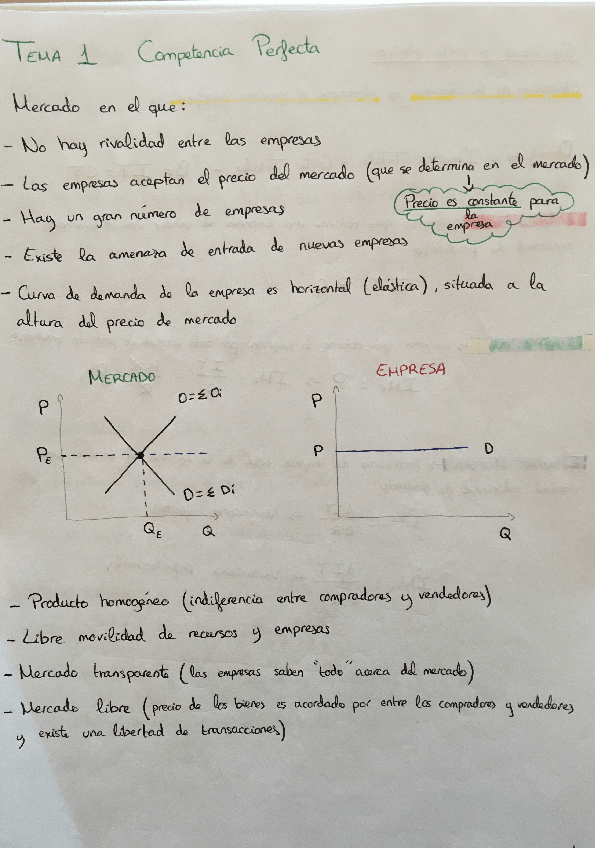 TEMA 1 Competencia Perfecta
Mercado en el que:
- No hay rivalidad entre las empresas
- Las empresas aceptan el precio del mercado (que se determina en el mercado)
Precio es constante para
la
empresa
- Hay un gran número de empresas
- Existe la amenaza de entrada de nuevas empresas
- Curva de demanda de la empresa es horizontal (elástica), situada a la
altura del precio de mercado
MERCADO
P
O=ΣOi
PE
D=ΣDi
QE
Q
EMPRESA
P
P
D
Q
- Producto homogéneo (indiferencia entre compradores y vendedores)
- Libre movilidad de recursos y empresas
- Mercado transparente (las empresas saben "todo" acerca del mercado)
- Mercado libre (precio de los bienes es acordado por entre los compradores y vendedores
y existe una libertad de transacciones)